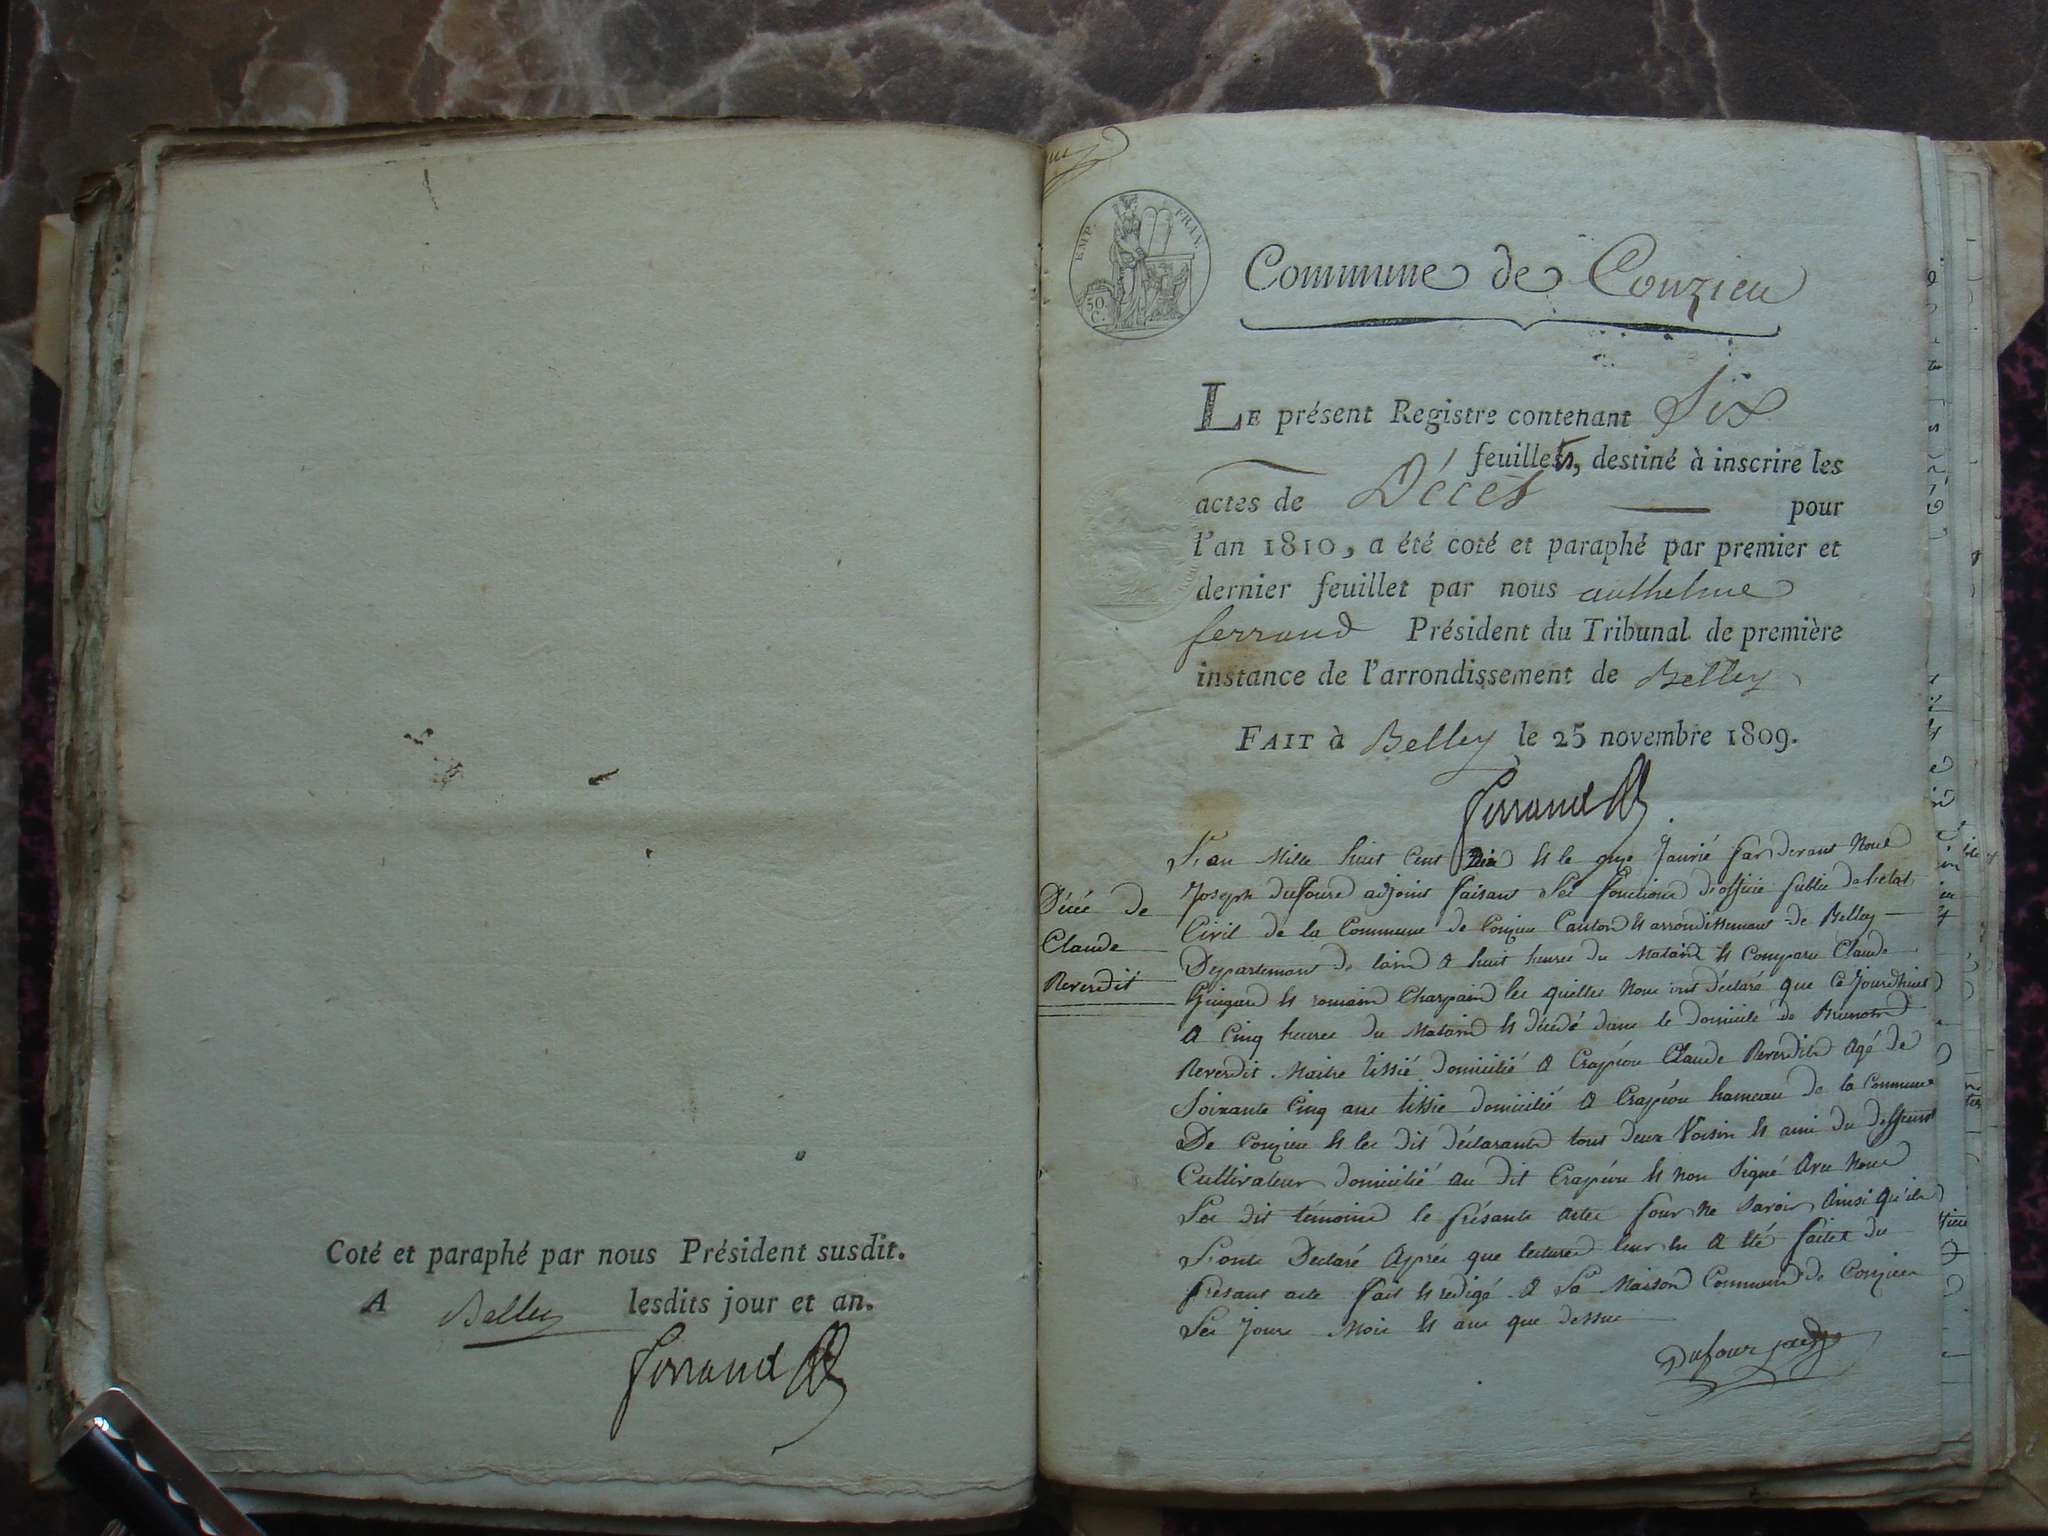 Coté et paraphé par nous Président susdit.
A Belley lesdits jour et an.
Ferrand
EMP. FRAN.
50 C.
Commune de Conzieu
LE présent Registre contenant Six
feuillets, destiné à inscrire les
actes de Décès pour
l'an 1810, a été coté et paraphé par premier et
dernier feuillet par nous anthelme
ferrand Président du Tribunal de première
instance de l'arrondissement de Belley
FAIT à Belley le 25 novembre 1809.
Ferrand
Décés de
Claude
Reverdit
L'an Mille huit Cent Dix et le Janvié par devant Nous
Joseph dufour adjoint faisant Les fonctions d'officié public de letat
Civil de la Commune de Conzieu Canton et arrondissemant de Belley
Departemant de lain a huit heures du Matain et Comparu Claude
et romain Charpain les quelles Nous ont déclaré que Ce Jourdhuit
a Cinq heures du Matain et décédé dans le domicile de
Reverdit Maitre tissié domicilié a Crapéou Claude Reverdit agé de
Soixante Cinq ans tissié domicilié a Crapéou hameau de la Commune
De Conzieu et les dit déclarants tous deux Voisin et ami du deffunt
Cultivateur domicilié au dit Crapéou et non Signé avec Nous
Les dit témoins le présante acte pour ne Savoir Ainsi qu'ils
L'onts Déclaré Aprés que lecture leur en a été faite du
présant acte fait et redigé a La Maison Commune de Conzieu
Les Jours Mois et ans que dessus
Dufour adj